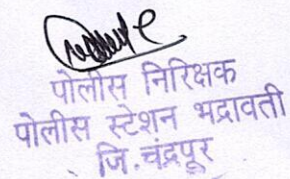 पोलीस निरिक्षक
पोलीस स्टेशन भद्रावती
जि.चंद्रपूर